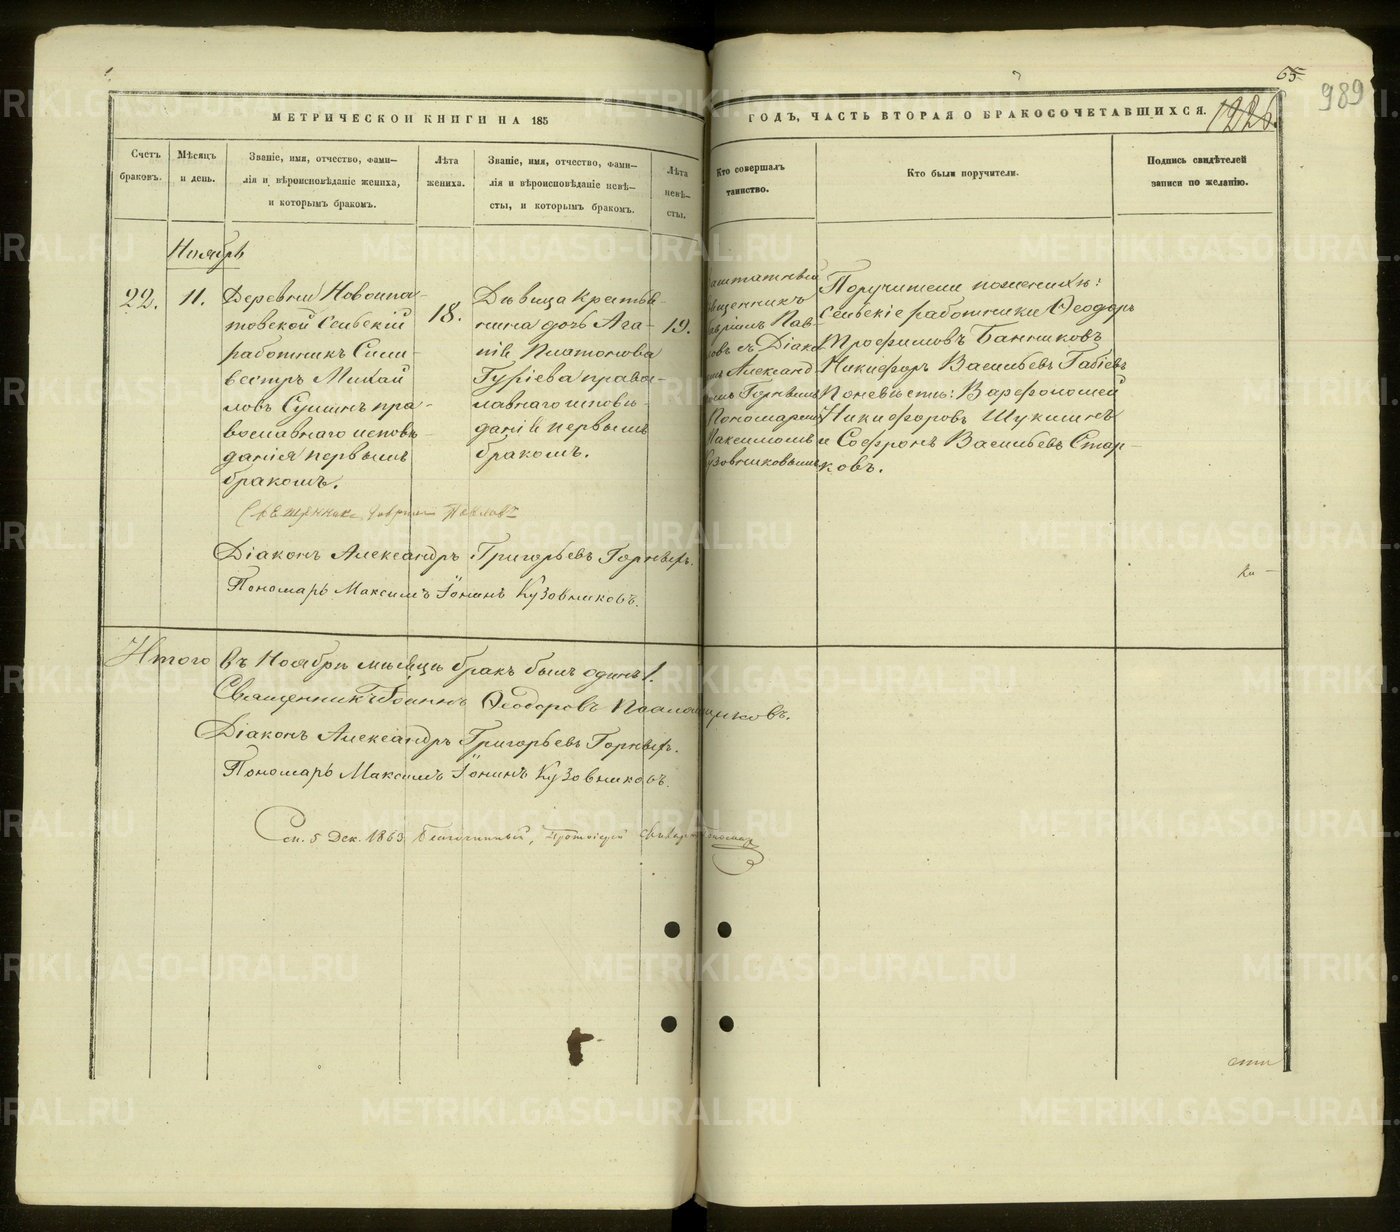 65
989
1226.
МЕТРИЧЕСКОЙ КНИГИ НА 185
ГОДЪ, ЧАСТЬ ВТОРАЯ О БРАКОСОЧЕТАВШИХСЯ.
Счетъ
браковъ.
Мѣсяцъ
и день.
Званіе, имя, отчество, фами-
лія и вѣроисповѣданіе жениха,
и которымъ бракомъ.
Лѣта
жениха.
Званіе, имя, отчество, фами-
лія и вѣроисповѣданіе невѣ-
сты, и которымъ бракомъ.
Лѣта
невѣ-
сты.
Кто совершалъ
таинство.
Кто были поручители.
Подпись свидѣтелей
записи по желанію.
Ноябрь
22.
11.
Деревни Новоипа-
товской Сельскій
работникъ Сили-
вестръ Михай
ловъ Сушинъ пра-
вославнаго исповѣ-
данія первымъ
бракомъ.
18.
Дѣвица Крестья-
нина дочь Ага-
пія Платонова
Гуріева право-
лавнаго исповѣ-
данія первымъ
бракомъ.
19.
аштатный
вященникъ
авріилъ Пав-
ловъ съ Діако
номъ Александ
ромъ Горныхъ
Пономаремъ
Максимомъ
Кузовниковымъ
Поручители по женихѣ:
сельскіе работники Ѳеодоръ
Трофимовъ Банниковъ
Никифоръ Васильевъ Габіевъ
По невѣстѣ: Варфоломей
Никифоровъ Шукшинъ
и Софронъ Васильевъ Стар-
ковъ.
Священникъ Гавріилъ Павловъ
Діаконъ Александръ Григорьевъ Горныхъ.
Пономарь Максимъ Іонинъ Кузовниковъ.
Итого въ Ноябрѣ мѣсяцѣ бракъ былъ одинъ 1.
Священникъ Іоаннъ Ѳеодоровъ Паломщиковъ.
Діаконъ Александръ Григорьевъ Горныхъ.
Пономарь Максимъ Іонинъ Кузовниковъ.
См. 5 Дек. 1863 Благочинный, Протоіерей
METRIKI.GASO-URAL.RU